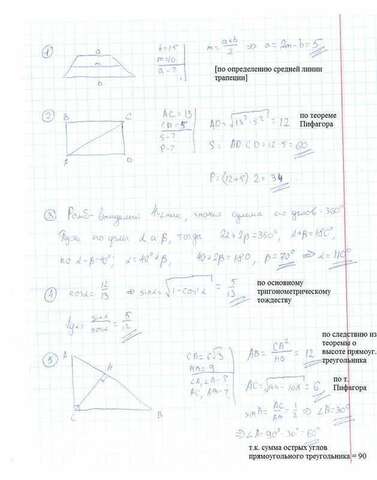 1
a
m
b
b=15
m=10
a-?
m = a+b/2 ⇒ a = 2m-b = 5
[по определению средней линии
трапеции]
2
B
C
A
D
AC=13
CD=5
S-?
P-?
AD = √13²-5² = 12
по теореме
Пифагора
S = AD·CD = 12·5 = 60
P = (12+5)·2 = 34
3 Ромб - выпуклый
сумма его углов - 360°
углы α и β, тогда 2α+2β=360°, α+β=180°,
но α-β=40°; α=40°+β, 40+2β=180, β=70° ⇒ α=110°
4
cosα = 12/13 ⇒ sinα = √1-cos²α = 5/13
по основному
тригонометрическому
тождеству
tgα = sinα/cosα = 5/12
5
A
H
C
B
CB=6√3
HB=9
AB = CB²/HB = 12
по следствию из
теоремы о
высоте прямоуг.
треугольника
AC = √144-108 = 6
по т.
Пифагора
= AC/AB = 1/2 ⇒ = 30°
⇒ = 90°-30°=60°
т.к. сумма острых углов
прямоугольного треугольника = 90